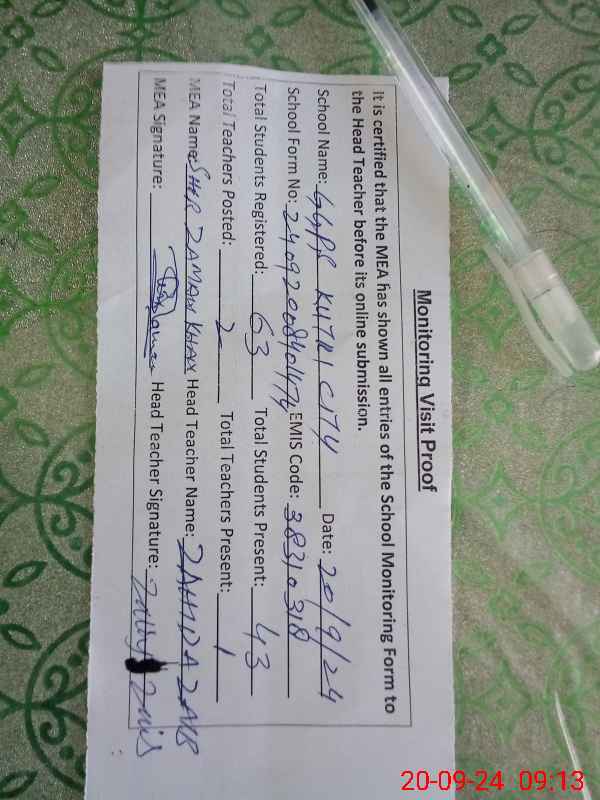 Monitoring Visit Proof
It is certified that the MEA has shown all entries of the School Monitoring Form to
the Head Teacher before its online submission.
School Name: GGPS KUTRI CITY Date: 20/9/24
School Form No: EMIS Code: 38310318
Total Students Registered: 63 Total Students Present: 43
Total Teachers Posted: 2 Total Teachers Present: 1
MEA Name: SHER ZAMAN KHAN Head Teacher Name: ZAHIDA ZAIB
MEA Signature: Head Teacher Signature:
20-09-24 09:13